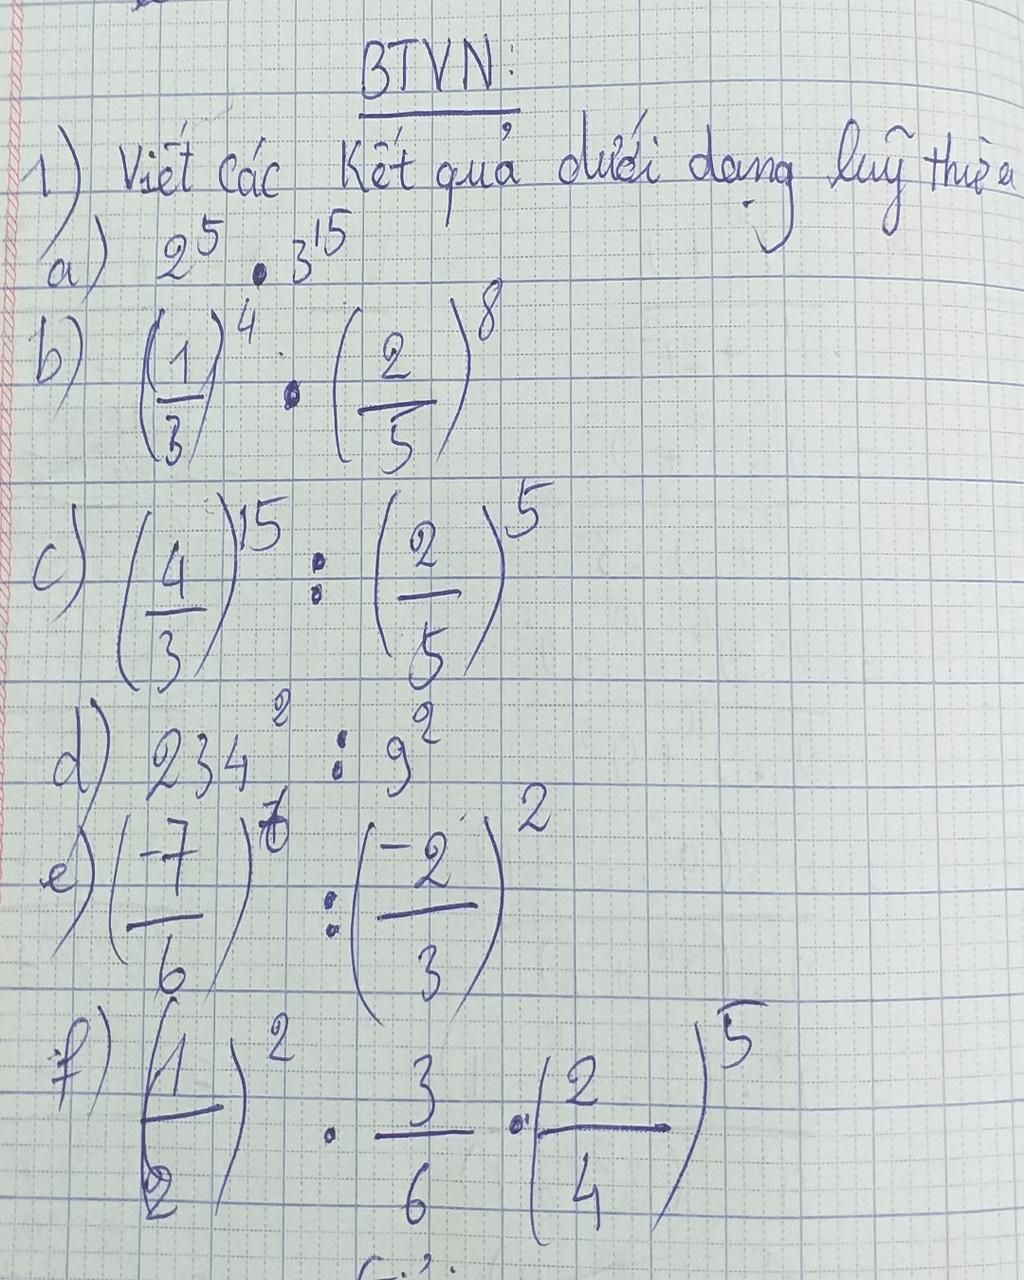 BTVN:
1) Viết các kết quả dưới dạng luỹ thừa
a) 2^5 . 3^15
b) (1/3)^4 . (2/5)^8
c) (4/3)^15 : (2/5)^5
d) 234^2 : 9^2
e) (-7/6)^6 : (-2/3)^2
f) (1/2)^2 . 3/6 . (2/4)^5